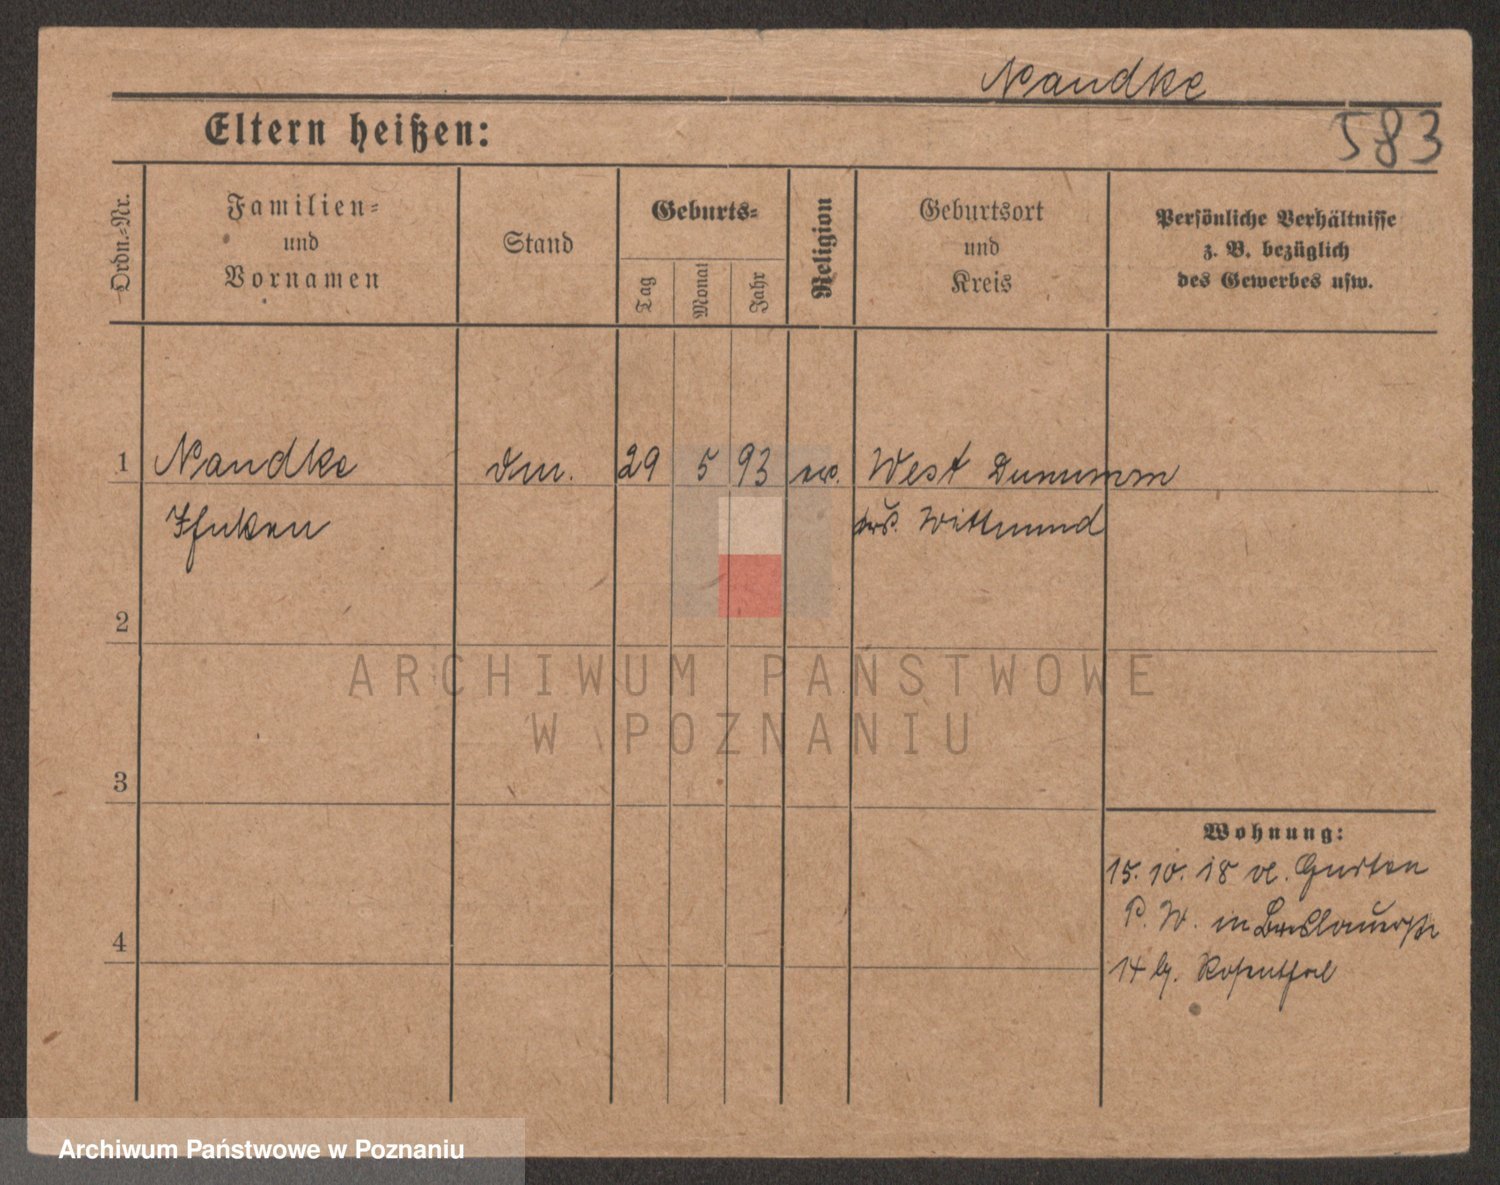 Nandke
583
Eltern heißen:
Ordn.-Nr.
Familien-
und
Vornamen
Stand
Geburts-
Tag
Monat
Jahr
Religion
Geburtsort
und
Kreis
Persönliche Verhältnisse
z. B. bezüglich
des Gewerbes usw.
1 Nandke 29 5 93 ev. West Dunumm
Wittmund
2
ARCHIWUM PAŃSTWOWE
W POZNANIU
3
Wohnung:
15. 10. 18 Gurten
P. W. in Breslauerstr
4
14 b. Rosenthal
Archiwum Państwowe w Poznaniu